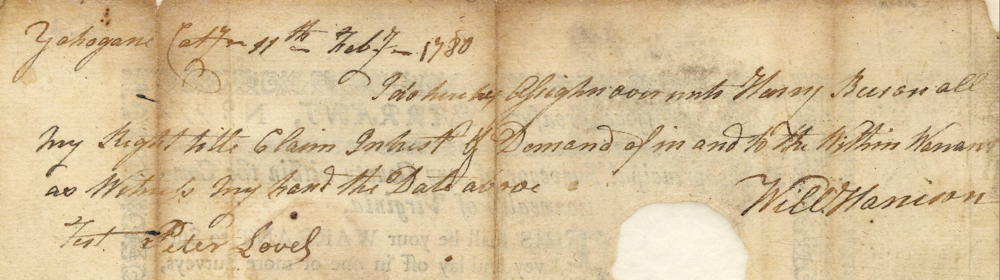 Yohogane Coty 11th Feby 1780
I do hereby Assighn over unto Harry Beeson all
my Right title Claim Intrest & Demand of in and to the Within Warrant
as Witness my hand the Date above
Will Harrison
Test. Peter Lovel